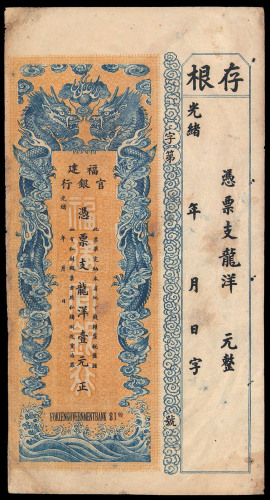 存根
光緒 年 月 日 字
憑票支龍洋 元整
字第 號
福建
官銀行
憑票支龍洋壹元正
光緒 年 月 日
FOKIEN GOVERNMENT BANK $1.00